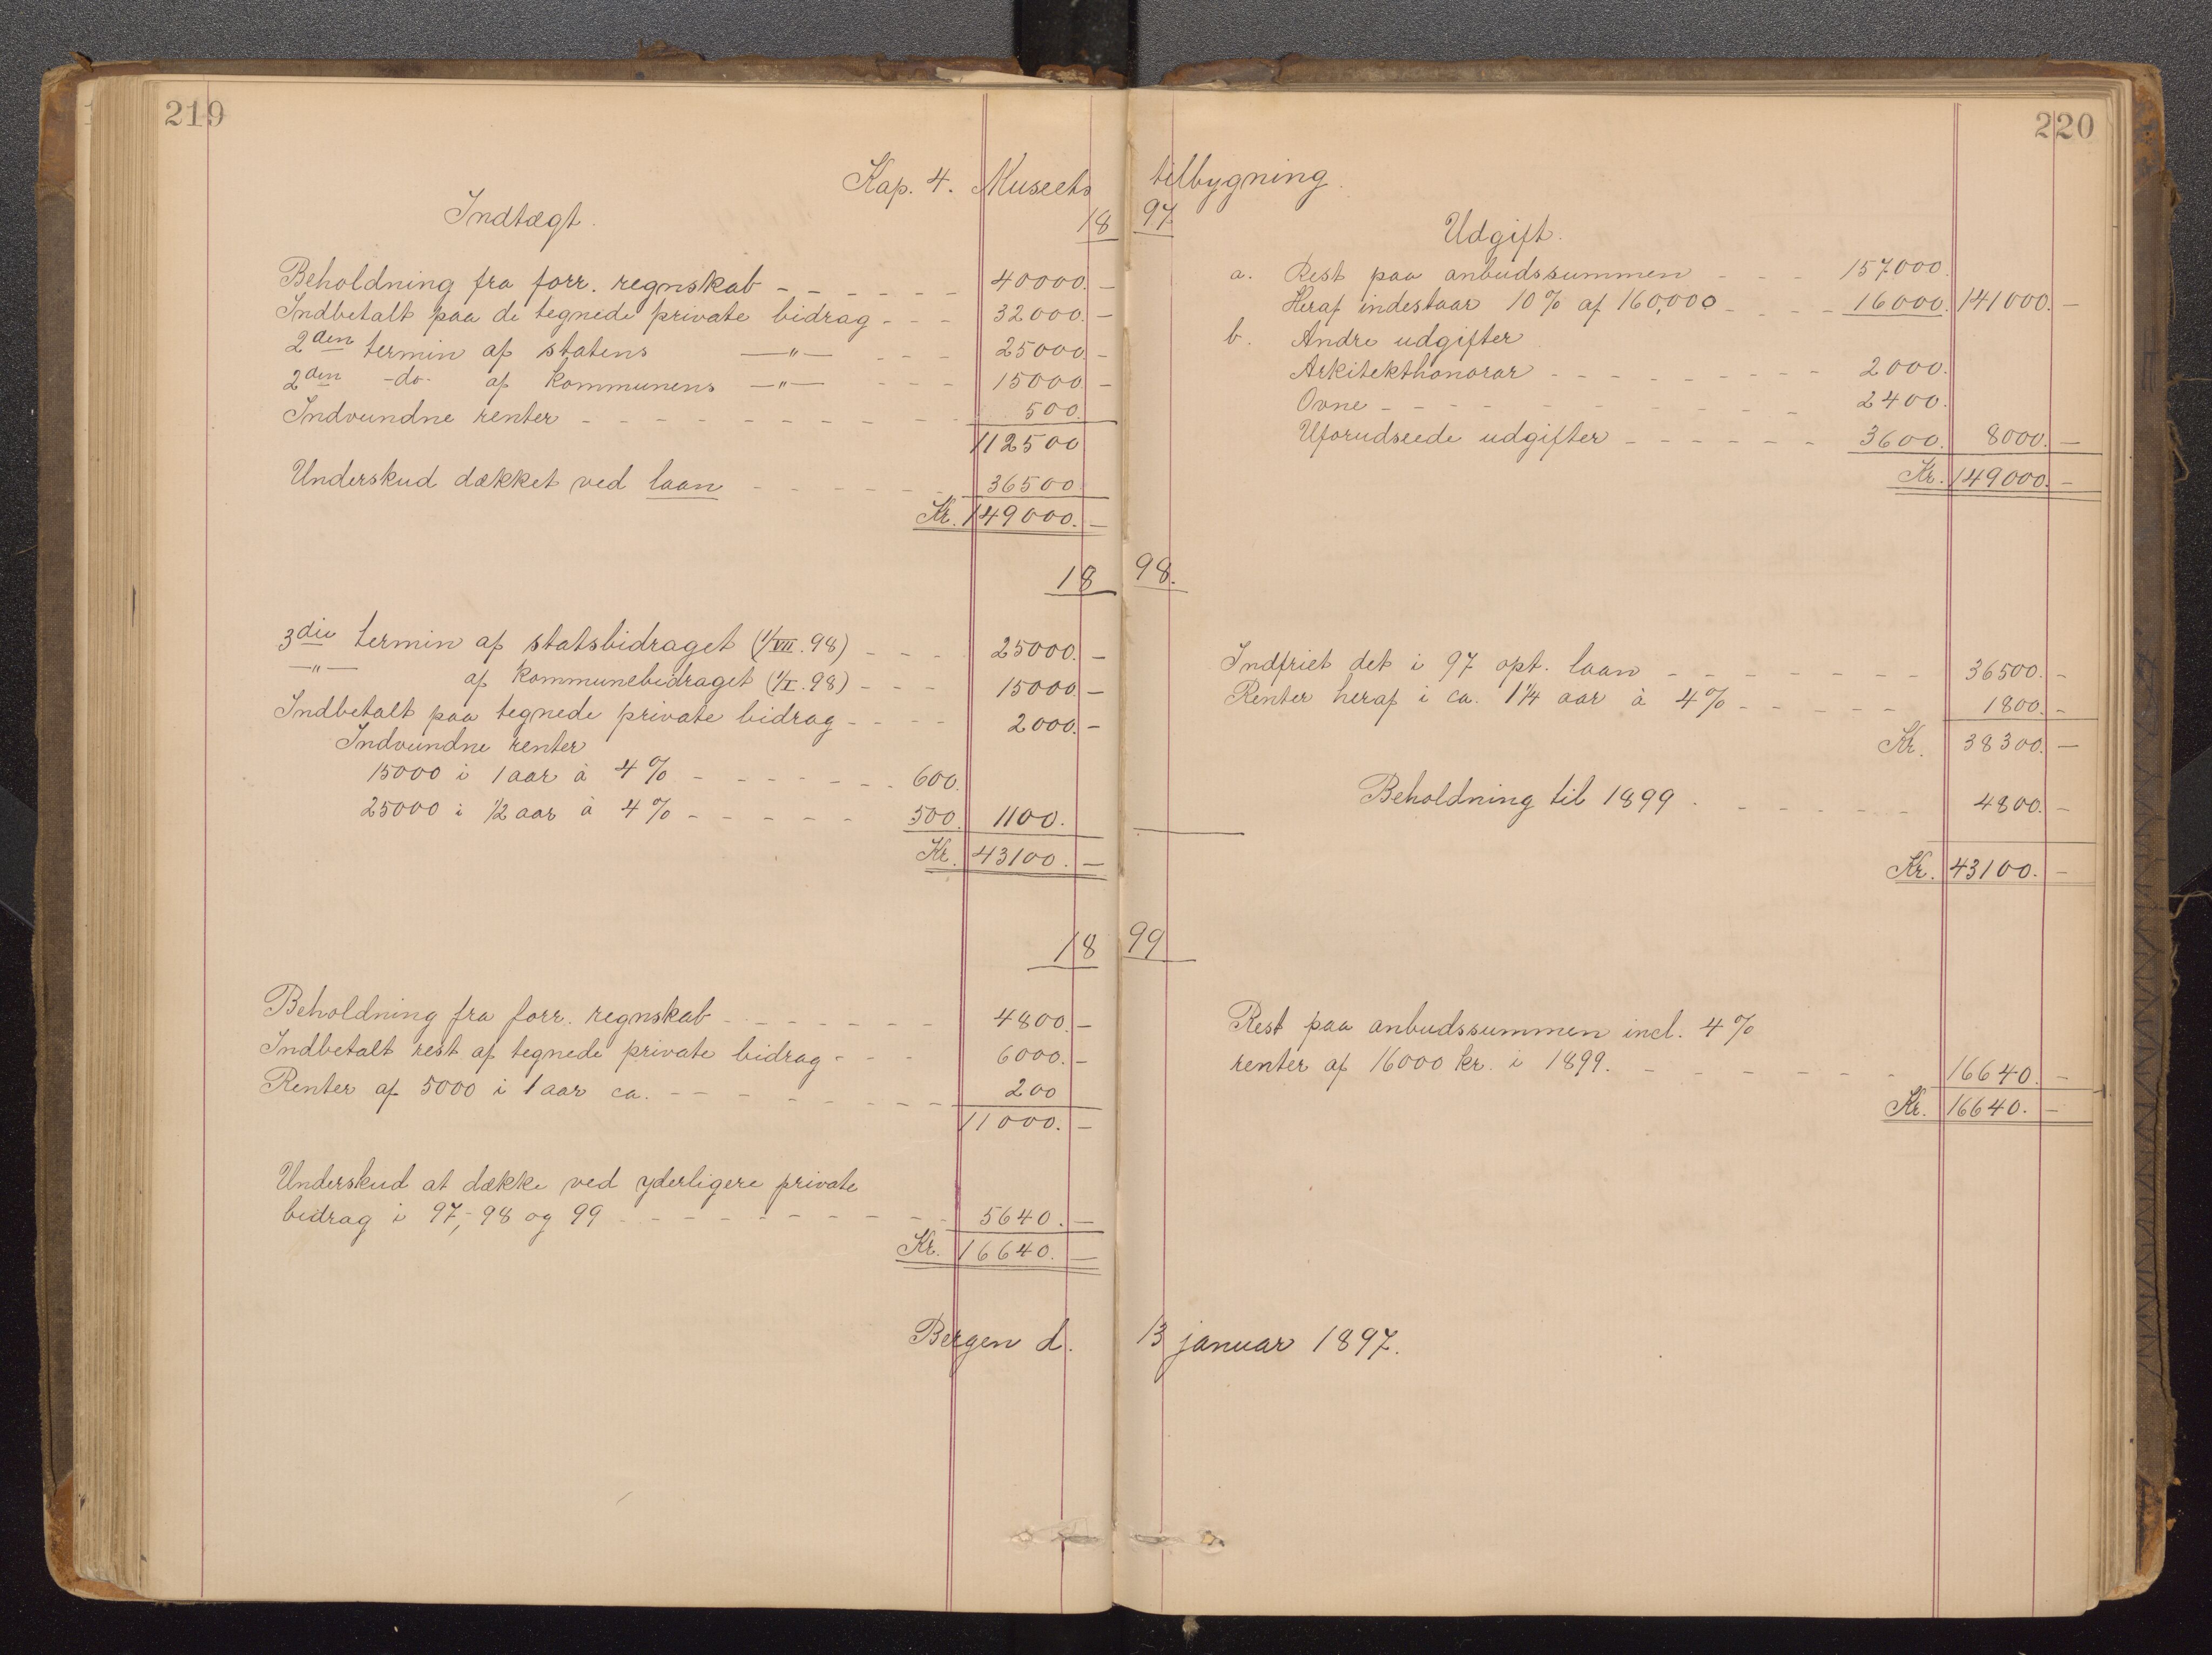 219
Kap. 4. Museets tilbygning.
1897.
Indtægt.
Beholdning fra forr. regnskab - - - - - - 40000. -
Indbetalt paa de tegnede private bidrag - - - 32000. -
2den termin af statens —"— - - - 25000. -
2den -do- af kommunens —"— - - - 15000. -
Indvundne renter - - - - - - - - - 500.
112500
Underskud dækket ved laan - - - - - - 36500
Kr. 149000. -
220
Udgift.
a. Rest paa anbudssummen - - - 157000.
Heraf indestaar 10% af 160,000 - - - - 16000. 141000. -
b. Andre udgifter
Arkitekthonorar - - - - - - - - - 2000.
Ovne - - - - - - - - - - 2400.
Uforudseede udgifter - - - - - - 3600. 8000. -
Kr. 149000. -
1898.
3die termin af statsbidraget (1/VII. 98) - - - - 25000. -
—"— af kommunebidraget (1/I. 98) - - - 15000. -
Indbetalt paa tegnede private bidrag - - - - 2000. -
Indvundne renter
15000 i 1 aar à 4% - - - - - - - 600.
25000 i 1/2 aar à 4% - - - - - 500. 1100.
Kr. 43100. -
Indfriet det i 97 opt. laan - - - - - - - 36500. -
Renter heraf i ca. 1 1/4 aar à 4% - - - - - 1800. -
Kr. 38300. -
Beholdning til 1899 - - - - - - 4800. -
Kr. 43100. -
1899
Beholdning fra forr. regnskab - - - - - - - 4800. -
Indbetalt rest af tegnede private bidrag - - - 6000. -
Renter af 5000 i 1 aar ca. - - - - - - - - 200
11000. -
Underskud at dække ved yderligere private
bidrag i 97,- 98 og 99 - - - - - - - - - - 5640. -
Kr. 16640. -
Rest paa anbudssummen incl. 4%
renter af 16000 kr. i 1899. - - - - - - - 16640. -
Kr. 16640. -
Bergen d. 13 januar 1897.